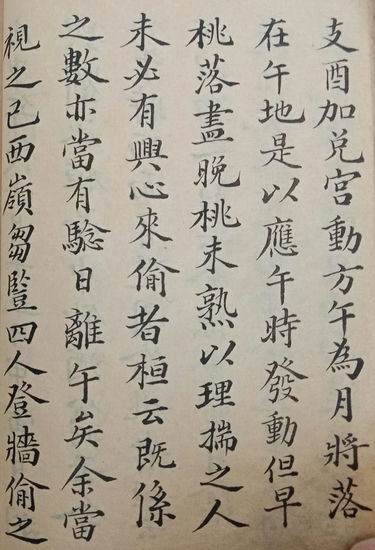 支酉加兌宮動方午為月將落
在午地是以應午時發動但早
桃落盡晚桃未熟以理揣之人
未必有興心來偷者桓云既係
之數亦當有騐日離午矣余當
視之已西嶺芻豎四人登牆偷之